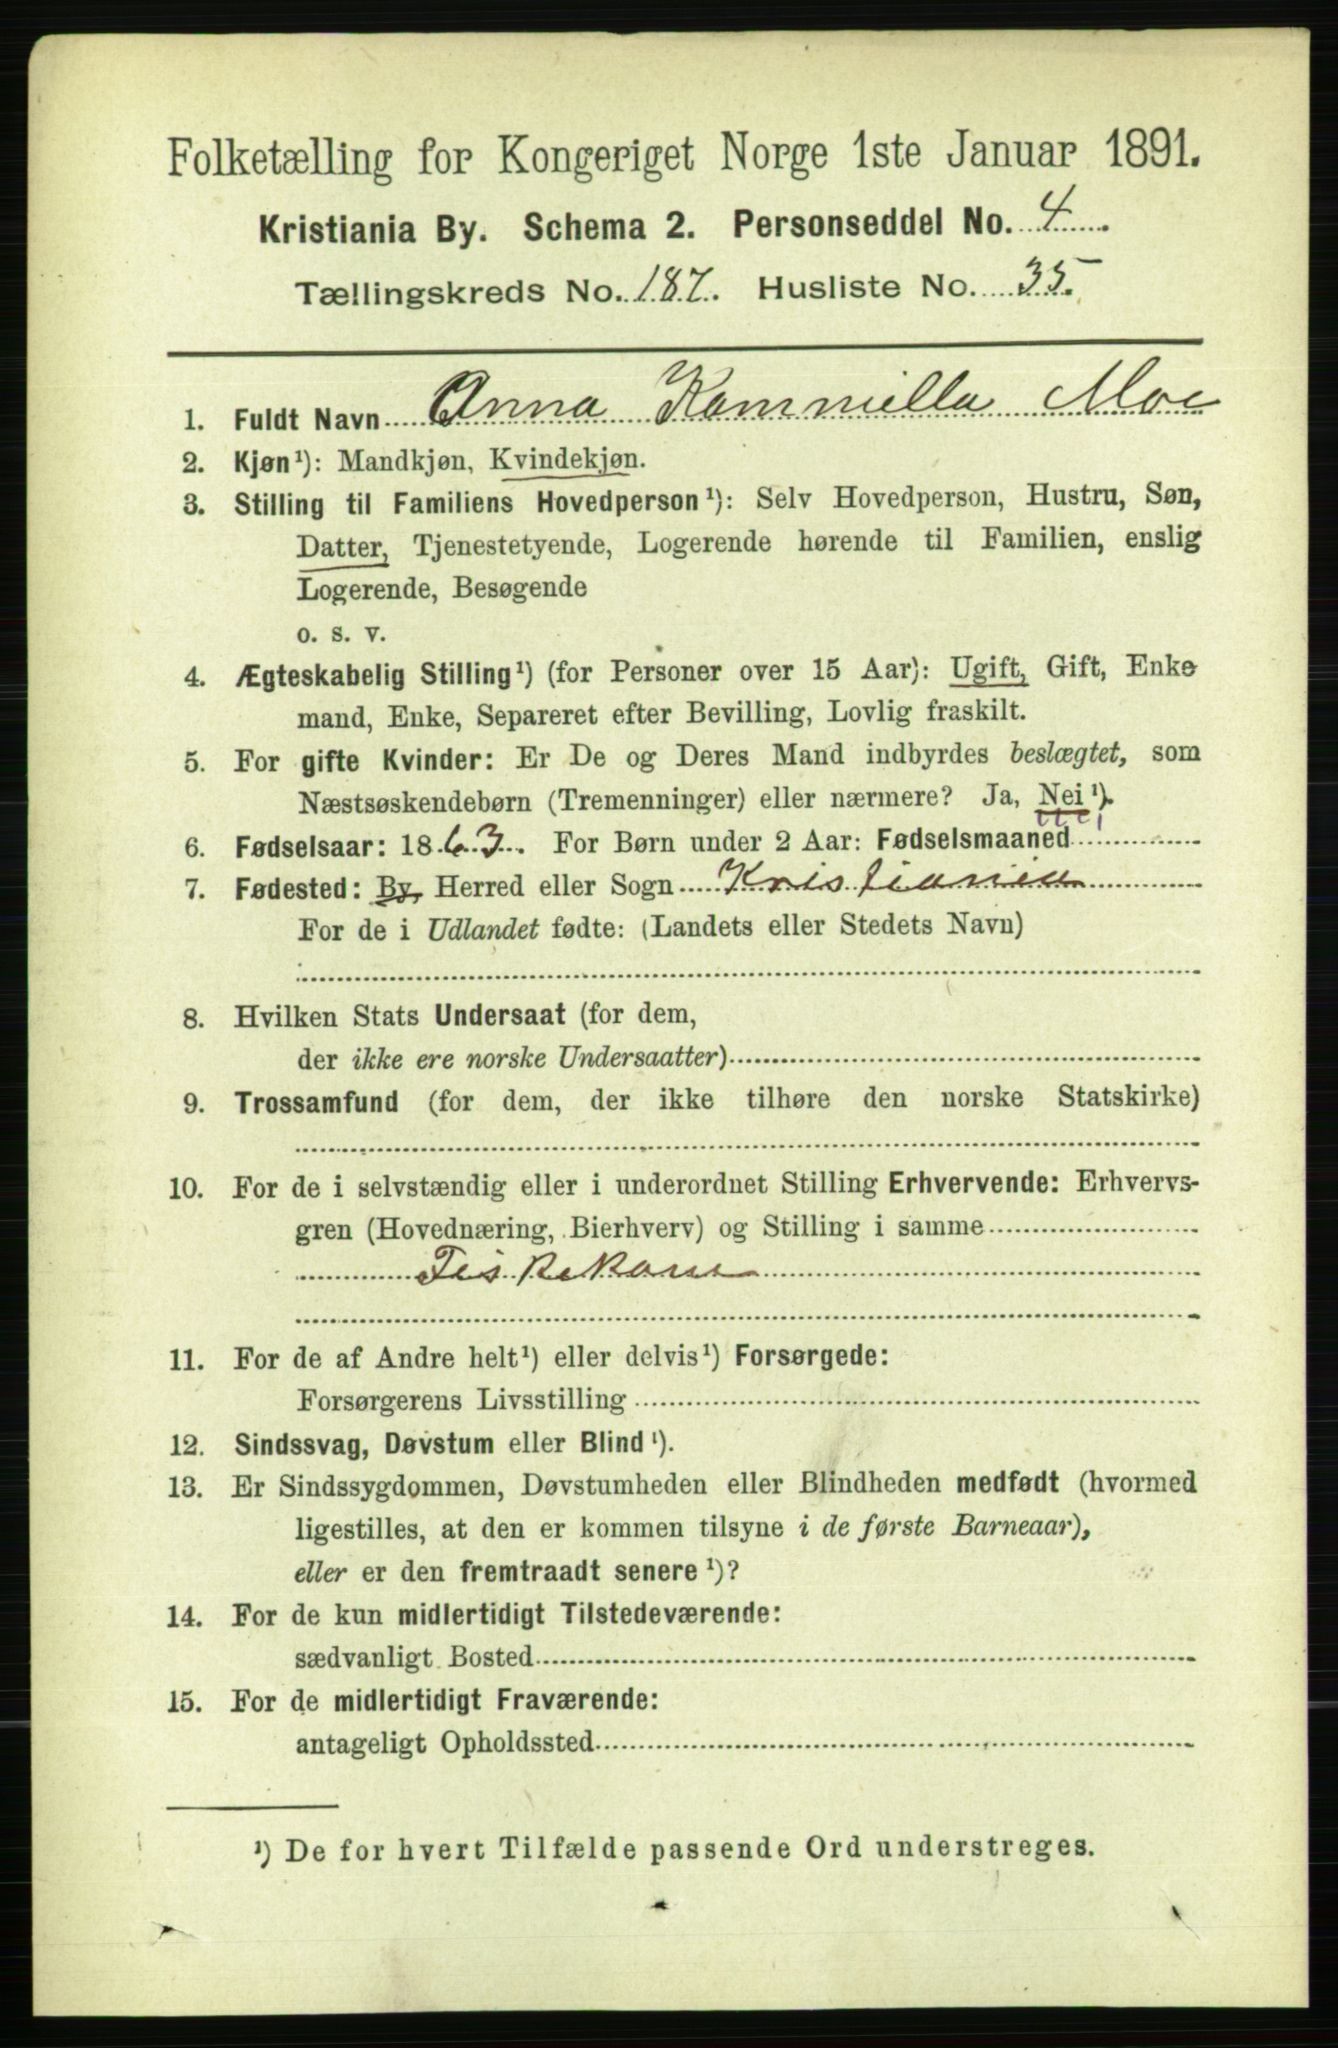 Folketælling for Kongeriget Norge 1ste Januar 1891.
Kristiania By. Schema 2. Personseddel No. 4
Tællingskreds No. 187. Husliste No. 35
1. Fuldt Navn Anna Kammilla Moe
2. Kjøn¹): Mandkjøn, Kvindekjøn.
3. Stilling til Familiens Hovedperson¹): Selv Hovedperson, Hustru, Søn,
Datter, Tjenestetyende, Logerende hørende til Familien, enslig
Logerende, Besøgende
o. s. v.
4. Ægteskabelig Stilling¹) (for Personer over 15 Aar): Ugift, Gift, Enke
mand, Enke, Separeret efter Bevilling, Lovlig fraskilt.
5. For gifte Kvinder: Er De og Deres Mand indbyrdes beslægtet, som
Næstsøskendebørn (Tremenninger) eller nærmere? Ja, Nei¹).
6. Fødselsaar: 1863. For Børn under 2 Aar: Fødselsmaaned
7. Fødested: By, Herred eller Sogn Kristiania
For de i Udlandet fødte: (Landets eller Stedets Navn)
8. Hvilken Stats Undersaat (for dem,
der ikke ere norske Undersaatter)
9. Trossamfund (for dem, der ikke tilhøre den norske Statskirke)
10. For de i selvstændig eller i underordnet Stilling Erhvervende: Erhvervs-
gren (Hovednæring, Bierhverv) og Stilling i samme
Fiskekone
11. For de af Andre helt¹) eller delvis¹) Forsørgede:
Forsørgerens Livsstilling
12. Sindssvag, Døvstum eller Blind¹).
13. Er Sindssygdommen, Døvstumheden eller Blindheden medfødt (hvormed
ligestilles, at den er kommen tilsyne i de første Barneaar),
eller er den fremtraadt senere¹)?
14. For de kun midlertidigt Tilstedeværende:
sædvanligt Bosted
15. For de midlertidigt Fraværende:
antageligt Opholdssted
¹) De for hvert Tilfælde passende Ord understreges.